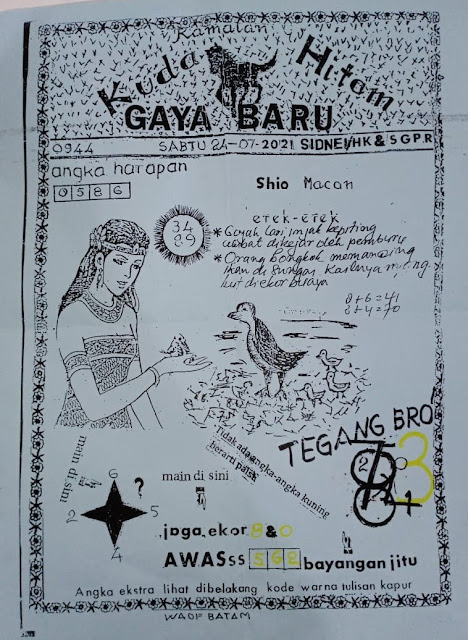 Ramalan
Kuda Hitam
GAYA BARU
0944 SABTU 24-07-2021 SIDNEY/HK & SGP.R
angka harapan
0586
Shio Macan
34
89
erek-erek
* Gajah lari injak kepiting
akibat dikejar oleh pemburu
* Orang bongkok memancing
ikan di sungai kailnya
di ekor buaya
8+6=41
8+4=70
TEGANG BRO
3
main di sini
6
?
2
5
4
main di sini
Tidak ada angka-angka kuning
berarti patah
jaga ekor 8 & 0
AWASss 562 bayangan jitu
Angka ekstra lihat dibelakang kode warna tulisan kapur
WADF BATAM